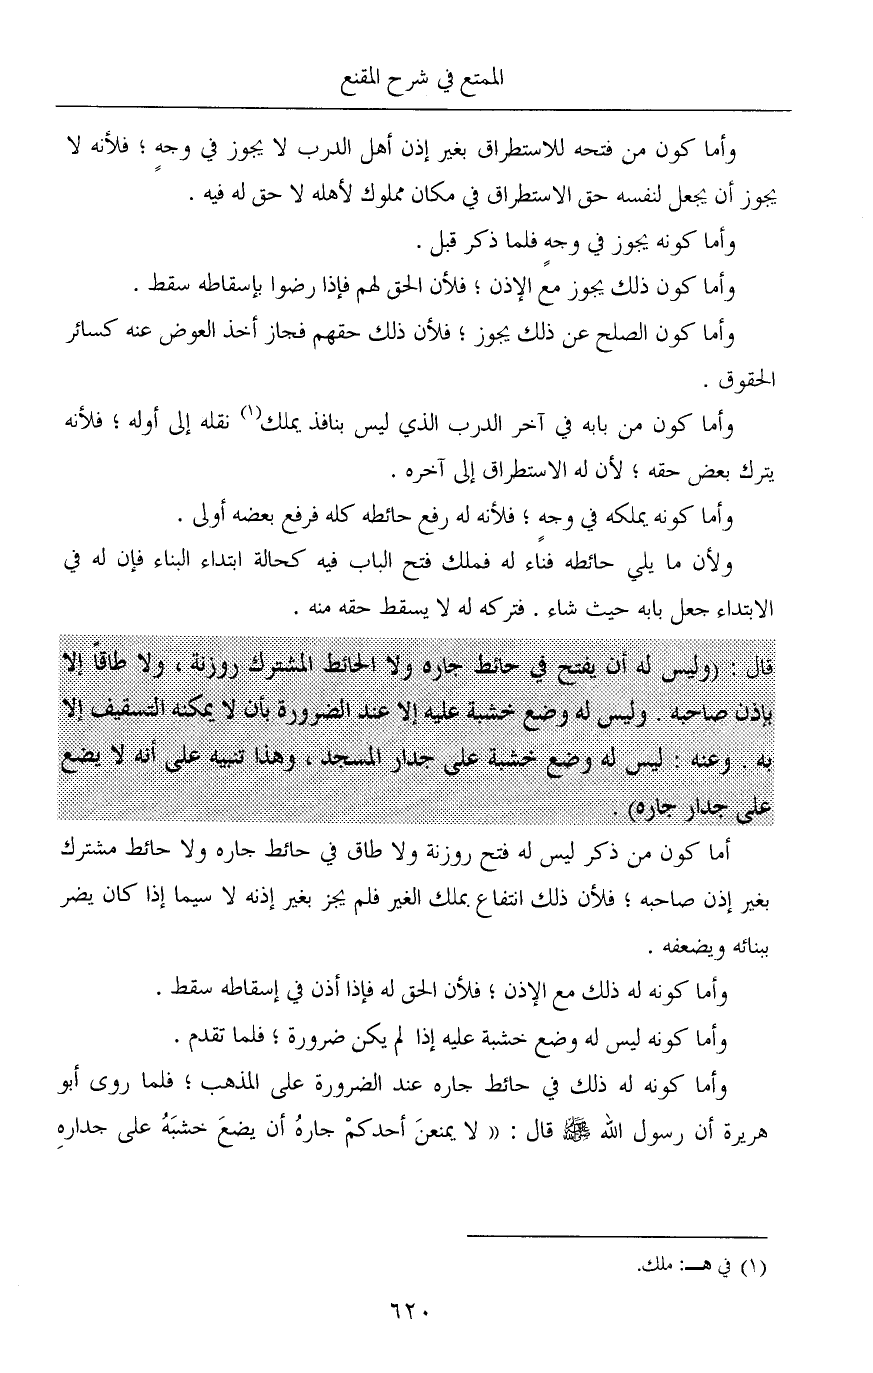 الممتع في شرح المقنع
وأما كون من فتحه للاستطراق بغير إذن أهل الدرب لا يجوز في وجهٍ ؛ فلأنه لا
يجوز أن يجعل لنفسه حق الاستطراق في مكان مملوك لأهله لا حق له فيه .
وأما كونه يجوز في وجهٍ فلما ذكر قبل .
وأما كون ذلك يجوز مع الإذن ؛ فلأن الحق لهم فإذا رضوا بإسقاطه سقط .
وأما كون الصلح عن ذلك يجوز ؛ فلأن ذلك حقهم فجاز أخذ العوض عنه كسائر
الحقوق .
وأما كون من بابه في آخر الدرب الذي ليس بنافذ يملك(١) نقله إلى أوله ؛ فلأنه
يترك بعض حقه ؛ لأن له الاستطراق إلى آخره .
وأما كونه يملكه في وجهٍ ؛ فلأنه له رفع حائطه كله فرفع بعضه أولى .
ولأن ما يلي حائطه فناء له فملك فتح الباب فيه كحالة ابتداء البناء فإن له في
الابتداء جعل بابه حيث شاء . فتركه له لا يسقط حقه منه .
قال : (وليس له أن يفتح في حائط جاره ولا الحائط المشترك روزنة ، ولا طاقاً إلا
بإذن صاحبه . وليس له وضع خشبة عليه إلا عند الضرورة بأن لا يمكنه التسقيف إلا
به . وعنه : ليس له وضع خشبة على جدار المسجد ، وهذا تنبيه على أنه لا يضع
على جدار جاره) .
أما كون من ذكر ليس له فتح روزنة ولا طاق في حائط جاره ولا حائط مشترك
بغير إذن صاحبه ؛ فلأن ذلك انتفاع بملك الغير فلم يجز بغير إذنه لا سيما إذا كان يضر
ببنائه ويضعفه .
وأما كونه له ذلك مع الإذن ؛ فلأن الحق له فإذا أذن في إسقاطه سقط .
وأما كونه ليس له وضع خشبة عليه إذا لم يكن ضرورة ؛ فلما تقدم .
وأما كونه له ذلك في حائط جاره عند الضرورة على المذهب ؛ فلما روى أبو
هريرة أن رسول الله ﷺ قال : « لا يمنعنَ أحدكمْ جارهُ أن يضعَ خشبَهُ على جدارهِ
(١) في هـ: ملك.
٦٢٠